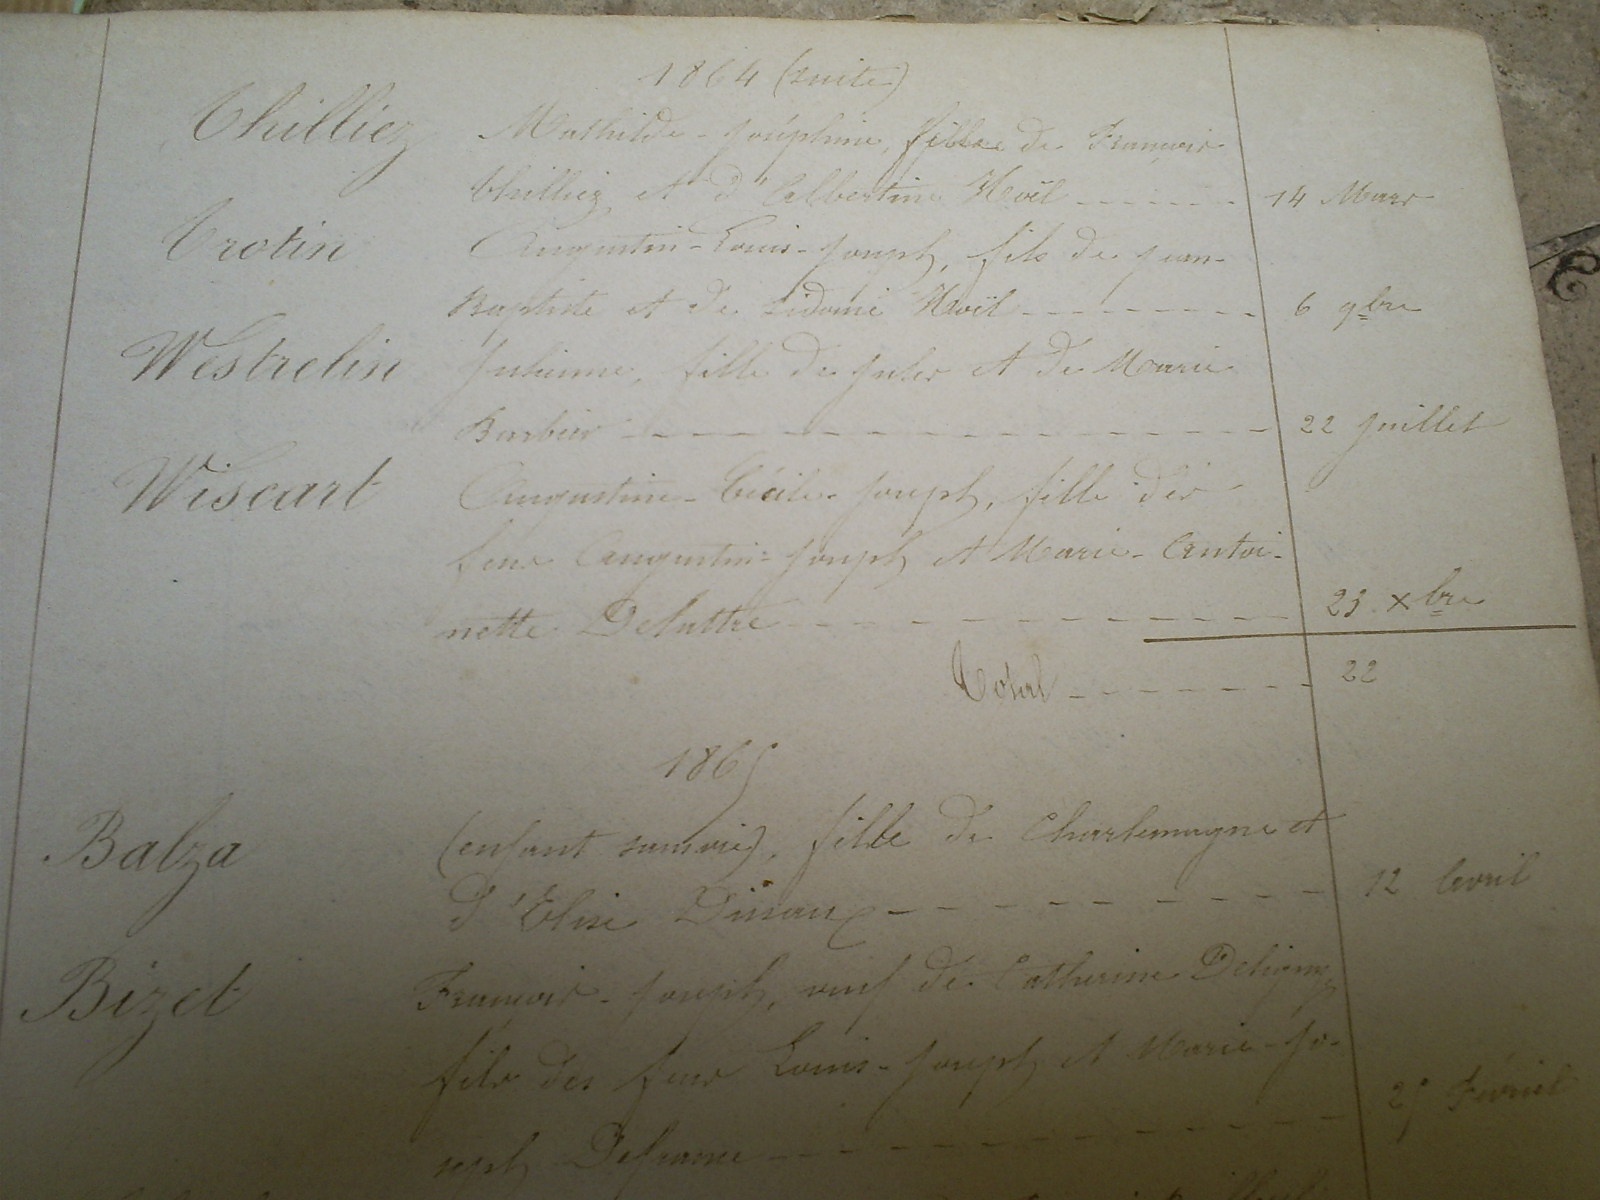 1864 (suite)
Thilliez Mathilde-Joséphine, fille de François
Thilliez et d'Albertine Noël 14 Mars
Trotin Augustin-Louis-Joseph, fils de Jean-
Baptiste et de Sidonie Noël 6 9bre
Westrelin Julienne, fille de Jules et de Marie
Barbier 22 Juillet
Wiscart Augustine-Cécile-Joseph, fille des
feus Augustin-Joseph et Marie-Antoi-
nette Delattre 25 Xbre
Total 22
1865
Balza (enfant sans vie), fille de Charlemagne et
d'Elise Dinaux 12 Avril
Bizet François-Joseph, veuf de Catherine Deligny
fils des feus Louis-Joseph et Marie-Jo-
seph Defrance 25 Février